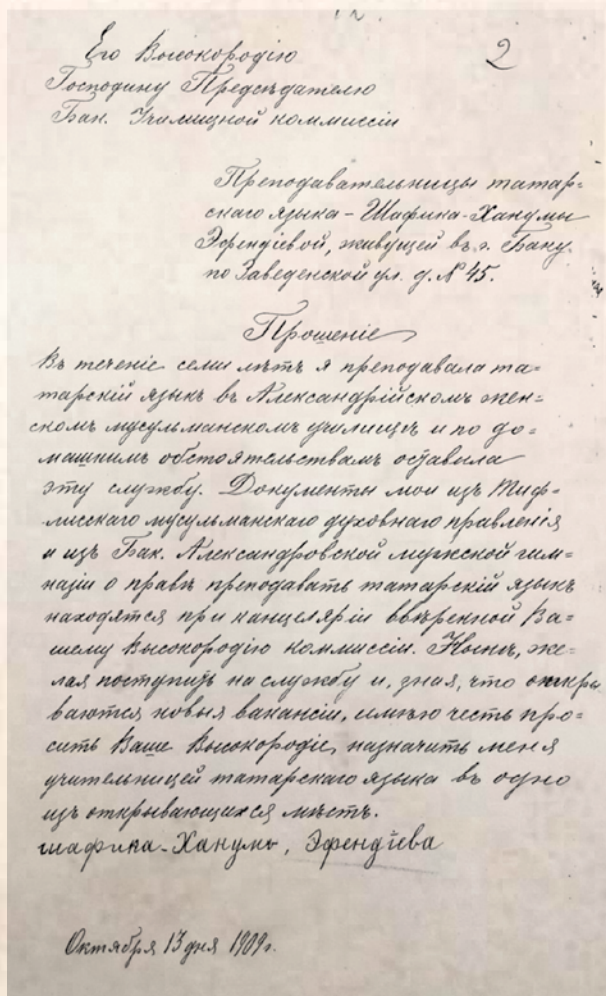 2
Его Высокородію
Господину Предсѣдателю
Бак. Училищной коммиссіи
Преподавательницы татар=
скаго языка - Шафика-Ханумы
Эфендіевой, живущей въ г. Баку
по Заведенской ул. д. № 45.
Прошеніе
Въ теченіе семи лѣтъ я преподавала та=
тарскій языкъ въ Александрійскомъ жен=
скомъ мусульманскомъ училищѣ и по до=
машнимъ обстоятельствамъ оставила
эту службу. Документы мои изъ Тиф=
лисскаго мусульманскаго духовнаго правленія
и изъ Бак. Александровской мужской гим=
назіи о правѣ преподавать татарскій языкъ
находятся при канцеляріи ввѣренной Ва=
шему Высокородію коммиссіи. Нынѣ, же=
лая поступить на службу и, зная, что откры
ваются новыя вакансіи, имѣю честь про=
сить Ваше Высокородіе, назначить меня
учительницей татарскаго языка въ одно
изъ открывающихся мѣстъ.
Шафика-Ханумъ, Эфендіева
Октября 13 дня 1909 г.